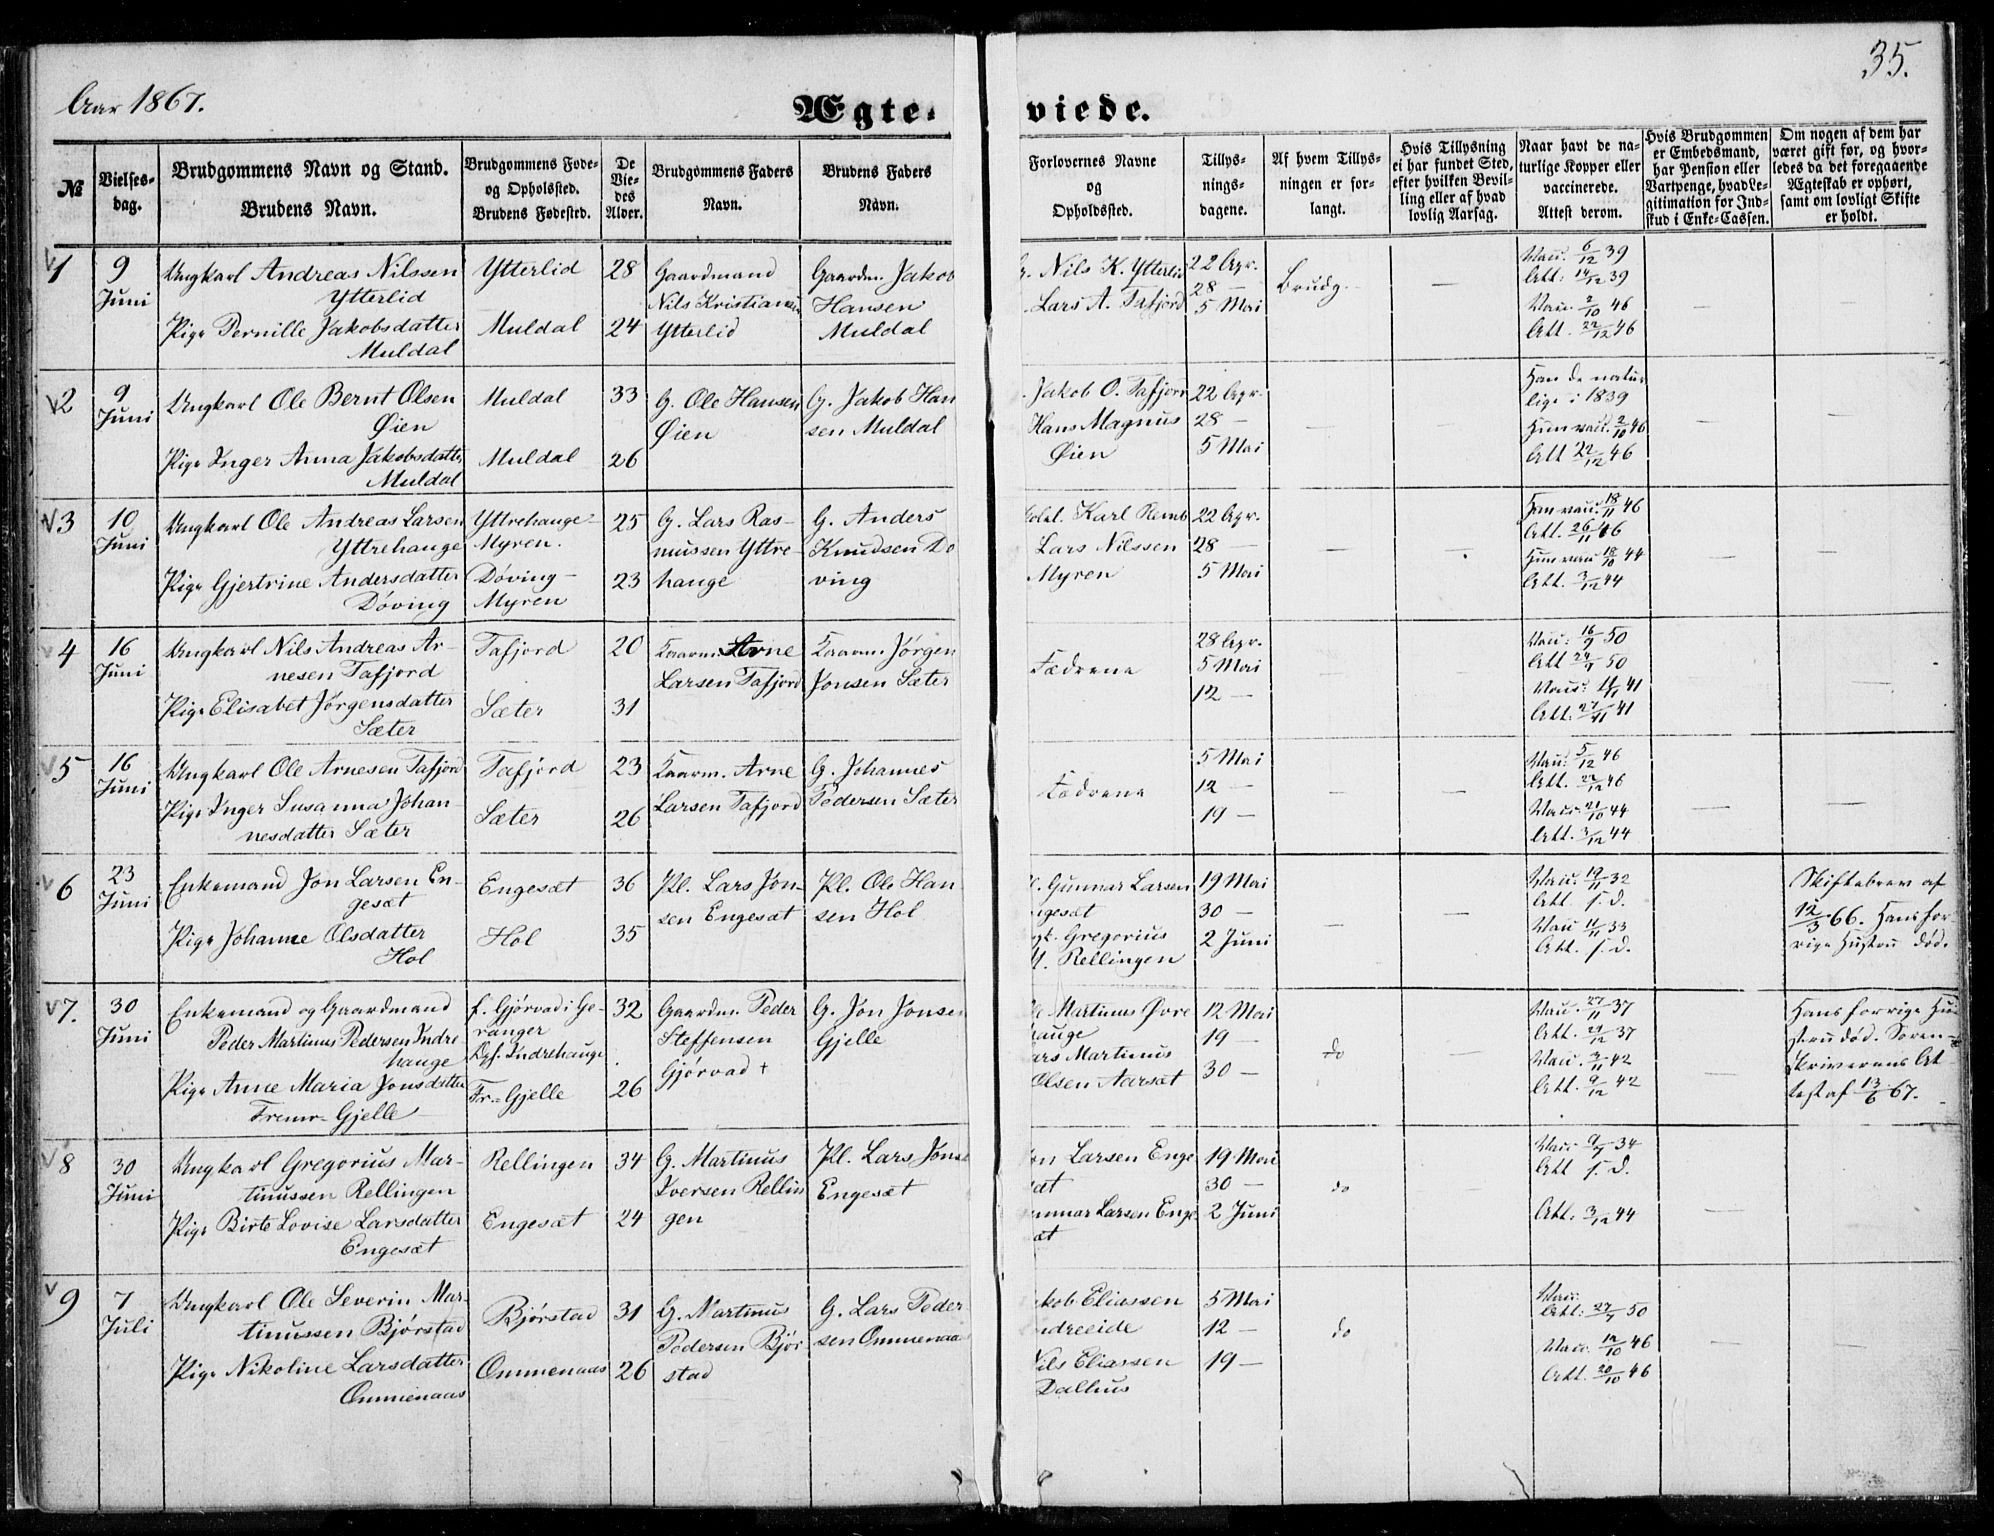 35.
Aar 1867.
Ægte-
viede.
№
Vielses-
dag.
Brudgommens Navn og Stand.
Brudens Navn.
Brudgommens Føde-
og Opholssted.
Brudens Fødested.
De
Vie-
des
Alder.
Brudgommens Faders
Navn.
Brudens Faders
Navn.
Forlovernes Navne
og
Opholdssted.
Tillys-
nings-
dagene.
Af hvem Tillys-
ningen er for-
langt.
Hvis Tillysning
ei har fundet Sted,
efter hvilken Bevil-
ling eller af hvad
lovlig Aarsag.
Naar havt de na-
turlige Kopper eller
vaccinerede.
Attest derom.
Hvis Brudgommen
er Embedsmand,
har Pension eller
Vartpenge, hvad Le-
gitimation for Ind-
skud i Enke-Cassen.
Om nogen af dem har
været gift før, og hvor-
ledes da det foregaaende
Ægteskab er ophørt,
samt om lovligt Skifte
er holdt.
1
9
Juni
Ungkarl Andreas Nilssen
Ytterlid
Pige Pernille Jakobsdatter
Muldal
Ytterlid
Muldal
28
24
Gaardmand
Nils Kristiansen
Ytterlid
Gaardm. Jakob
Hansen
Muldal
G. Nils K. Ytterlid
Lars A. Tafjord
22 Apr.
28 —
5 Mai
Brudg.
—
Vau. 6/12 39
Att. 14/12 39
Vau. 2/10 46
Att. 22/12 46
—
2
9
Juni
Ungkarl Ole Bernt Olsen
Øien
Pige Inger Anna Jakobsdatter
Muldal
Muldal
Muldal
33
26
G. Ole Hansen
Øien
G. Jakob Han
sen Muldal
Jakob O. Tafjord
Hans Magnus
Øien
22 Apr.
28 —
5 Mai
Han de natur
lige i 1839
Hun vau. 2/10 46
Att 22/12 46
—
—
3
10
Juni
Ungkarl Ole Andreas Larsen
Yttrehauge
Pige Gjertrine Andersdatter
Døving
Yttrehauge-
Myren.
Døving-
Myren
25
23
G. Lars Ras-
mussen Yttre-
hauge
G. Anders
Knudsen Dø
ving
Karl Remb
Lars Nilssen
Myren
22 Apr.
28 —
5 Mai
—
Han vau. 18/11 46
Att. 26/11 46
Hun vau 18/10 44
Att. 3/12 44
—
—
4
16
Juni
Ungkarl Nils Andreas Ar-
nesen Tafjord
Pige Elisabet Jørgensdatter
Sæter
Tafjord
Sæter
20
31
Kaarm. Arne
Larsen Tafjord
Kaarm. Jørgen
Jonsen Sæter
Fædrene
28 Apr.
5 Mai
12 —
—
—
Vau: 16/9 50
Att 24/9 50
Att. 27/11 41
—
—
5
16
Juni
Ungkarl Ole Arnesen Tafjord
Pige Inger Susanna Johan-
nesdatter Sæter
Tafjord
Sæter
23
26
Kaarm. Arne
Larsen Tafjord
G. Johannes
Pedersen Sæter
Fædrene
5 Mai
12 —
19 —
—
—
Vau: 5/12 46
Att. 22/12 46
Vau. 21/10 44
Att. 3/12 44
—
—
6
23
Juni
Enkemand Jon Larsen En-
gesæt
Pige Johanne Olsdatter
Hol
Engesæt
Hol
36
35
Pl. Lars Jon-
sen Engesæt
Pl. Ole Han-
sen Hol
Gunnar Larsen
ngesæt
Gregorius
M. Rellingen
19 Mai
30 —
2 Juni
—
—
Vau. 19/11 32
Att. s. d.
Vau 11/11 33
Att. s. d.
—
Skiftebrev af
12/3 66. Hans for
rige Hustru død.
7.
30
Juni
Enkemand og Gaardmand
Peder Martinus Pedersen Indre
hauge
Pige Anne Maria Jonsdatter
Fremr-Gjelle
f. Gjørvad i Ge-
ranger
Opf. Indrehauge
Fr.-Gjelle
32
26
Gaardm. Peder
Steffensen
Gjørvad +
G. Jon Jonsen
Gjelle
Martinus Øvre
hauge
ars Martinus
Olsen Aarsæt
12 Mai
19 —
30 —
do
—
Vau. 27/11 37
Att. 21/12 37
Vau. 3/11 42
Att. 9/12 42
—
Hans forrige Hu
stru død. Soren-
skriverens At
test af 13/6 67.
8
30
Juni
Ungkarl Gregorius Mar-
tinussen Rellingen
Pige Birte Lovise Larsdatter
Engesæt
Rellingen
Engesæt
34
24
G. Martinus
Iversen Rellin
gen
Pl. Lars Jons
Engesæt
on Larsen Enge
æt
unnar Larsen Enge
æt
19 Mai
30 —
2 Juni
do
—
Vau. 9/7 34
Att s. d.
Att. 3/12 44
—
9
7
Juli
Ungkarl Ole Severin Mar-
tinussen Bjørstad
Pige Nikoline Larsdatter
Ommenaas
Bjørstad
Ommenaas
31
26
G. Martinus
Pedersen Bjør
stad
G. Lars Peder-
sen Ommenaas
akob Eliassen
ndreeide
Nils Eliassen
Dalhus
5 Mai
12 —
19 —
do
Vau:
Att: 27/7 50
Vau. 12/10 46
Att. 20/10 46
—
—